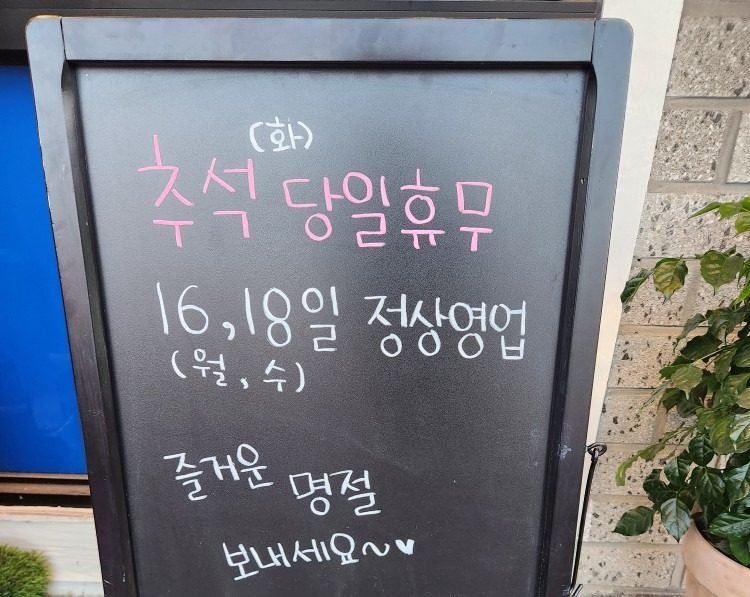 (화)
추석 당일휴무
16, 18일 정상영업
(월, 수)
즐거운 명절
보내세요~♥